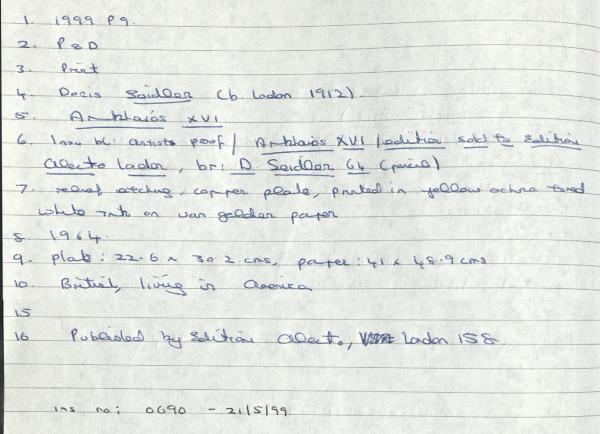 1. 1999 P9.
2. P&D
3. Print
4. Doris Seidler (b. London 1912).
5. Arkhaios XVI
6. Insc bl: artists proof / Arkhaios XVI / edition sold to Edition
Alecto London, br: D Seidler 64 (pencil)
7. relief etching, copper plate, printed in yellow ochre toned
white ink on van gelder paper
8. 1964.
9. plate: 22.6 x 30.2 cms, paper: 41 x 48.9 cms
10. British, living in America
15
16 Published by Edition Alecto, London 158.
ins no: 0690 - 21/5/99